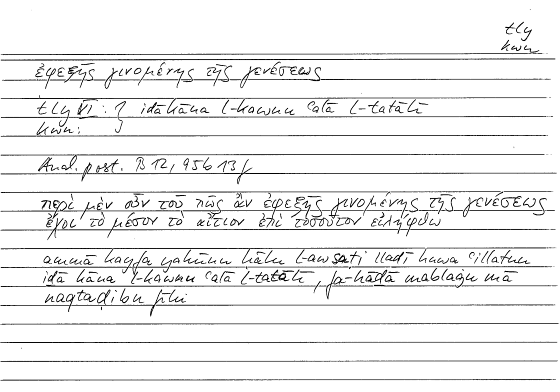 tly
kwn
ἐφεξῆς γινομένης τῆς γενέσεως
tly VI : } idā kāna l-kawnu ʿalā l-tatālī
kwn : }
Anal. post. B 12, 95b 13 f
περὶ μὲν οὖν τοῦ πῶς ἂν ἐφεξῆς γινομένης τῆς γενέσεως
ἔχοι τὸ μέσον τὸ αἴτιον ἐπὶ τοσοῦτον εἰλήφθω
ammā kayfa yakūnu ḥālu l-awsaṭi lladī huwa ʿillatun
idā kāna l-kawnu ʿalā l-tatālī, fa-hādā mablaġu mā
naqtaḍibu fīhi